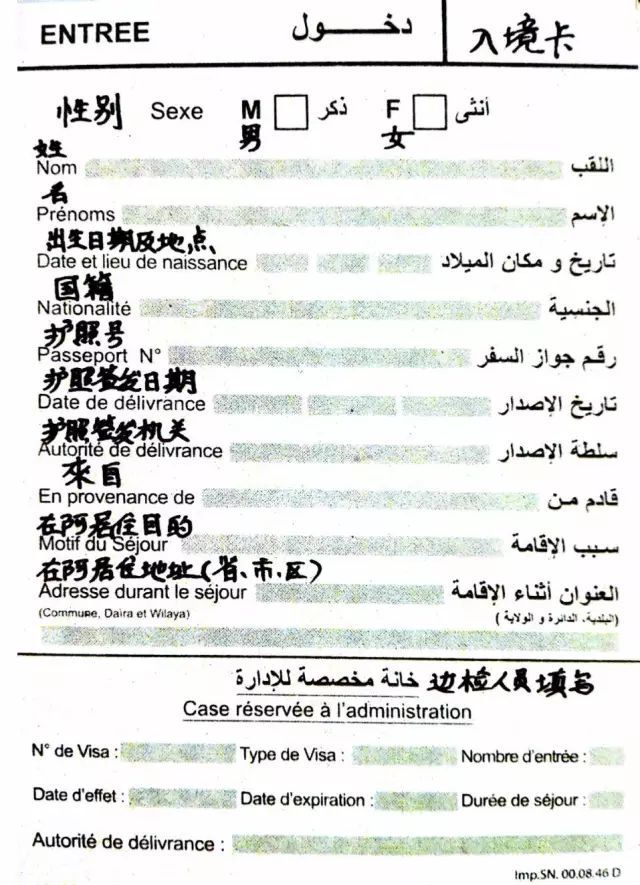 ENTREE دخــــول 入境卡
性别 Sexe M ذكر F أنثى
男 女
姓
Nom اللقب
名
Prénoms الإسم
出生日期及地点
Date et lieu de naissance تاريخ و مكان الميلاد
国籍
Nationalité الجنسية
护照号
Passeport N° رقم جواز السفر
护照签发日期
Date de délivrance تاريخ الإصدار
护照签发机关
Autorité de délivrance سلطة الإصدار
来自
En provenance de قادم من
在阿居住目的
Motif du Séjour سبب الإقامة
在阿居住地址(省、市、区)
Adresse durant le séjour العنوان أثناء الإقامة
(Commune, Daira et Wilaya) (البلدية، الدائرة و الولاية)
خانة مخصصة للإدارة 边检人员填写
Case réservée à l'administration
N° de Visa : Type de Visa : Nombre d'entrée :
Date d'effet : Date d'expiration : Durée de séjour :
Autorité de délivrance :
Imp.SN. 00.08.46 D